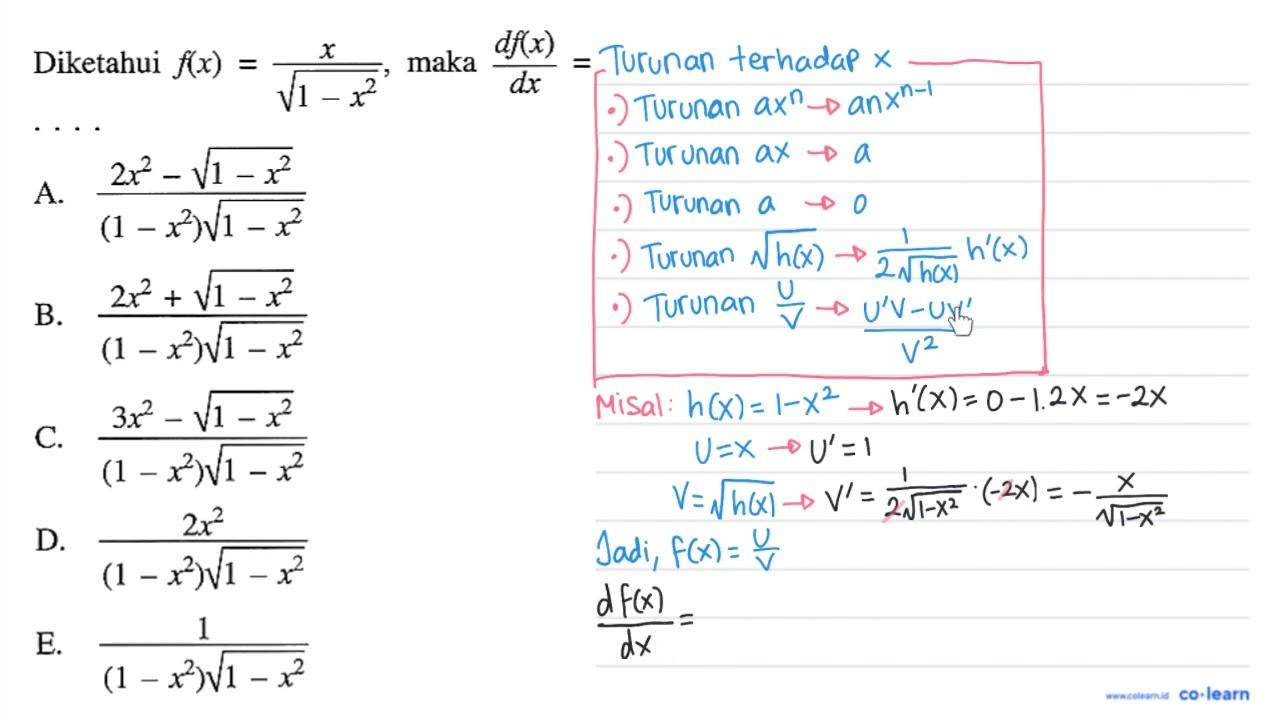 Diketahui f(x) = x/√(1 − x²), maka df(x)/dx =
. . . .
A. (2x² − √(1 − x²))/((1 − x²)√(1 − x²))
B. (2x² + √(1 − x²))/((1 − x²)√(1 − x²))
C. (3x² − √(1 − x²))/((1 − x²)√(1 − x²))
D. 2x²/((1 − x²)√(1 − x²))
E. 1/((1 − x²)√(1 − x²))
Turunan terhadap x
•) Turunan axⁿ → anxⁿ⁻¹
•) Turunan ax → a
•) Turunan a → 0
•) Turunan √h(x) → 1/(2√h(x)) h'(x)
•) Turunan U/V → (U'V − UV')/V²
Misal: h(x) = 1−x² → h'(x) = 0 − 1.2x = −2x
U = x → U' = 1
V = √h(x) → V' = 1/(2√(1−x²)) · (−2x) = − x/√(1−x²)
Jadi, f(x) = U/V
df(x)/dx =
www.colearn.id co·learn